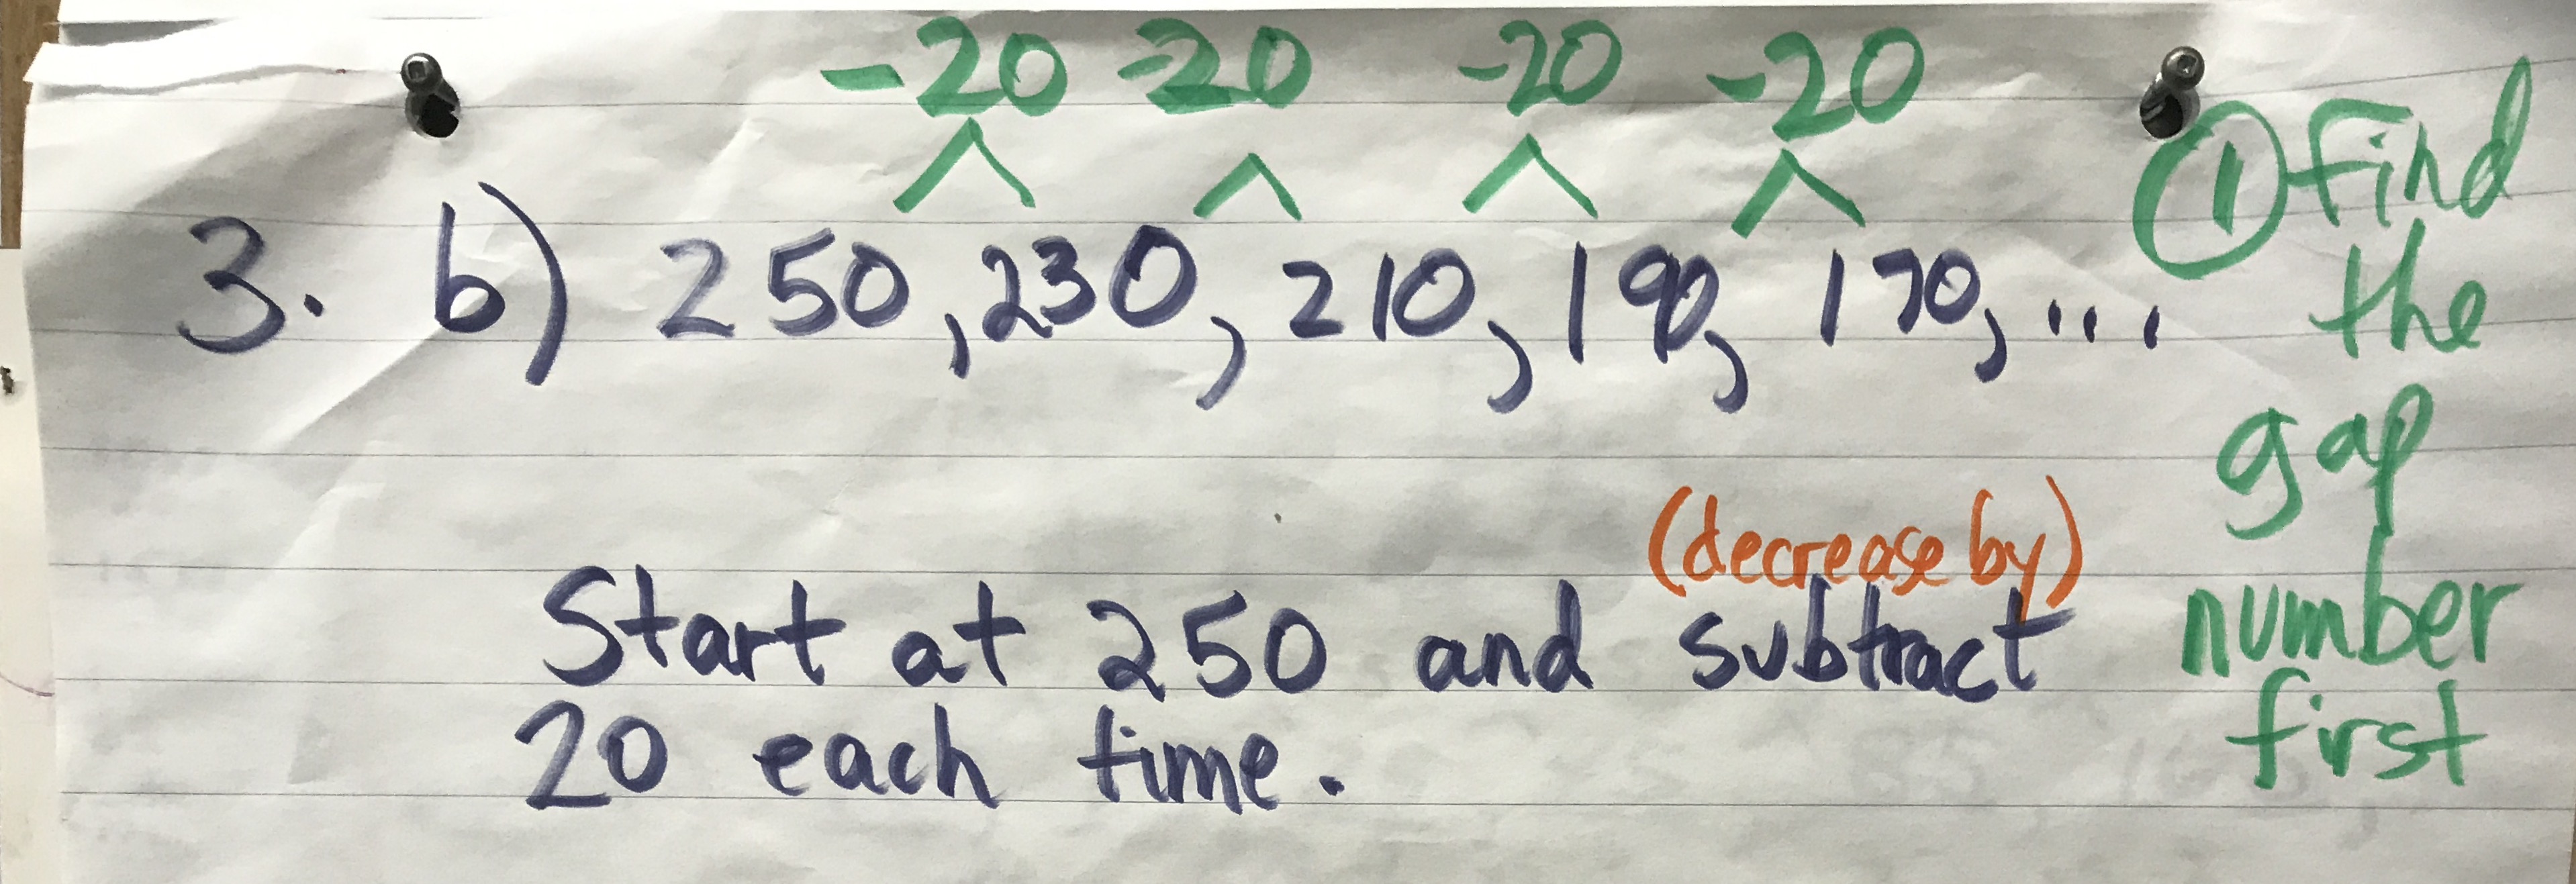 -20 -20 -20 -20
3. b) 250, 230, 210, 190, 170, ...
① Find
the
gap
number
first
(decrease by)
Start at 250 and subtract
20 each time.